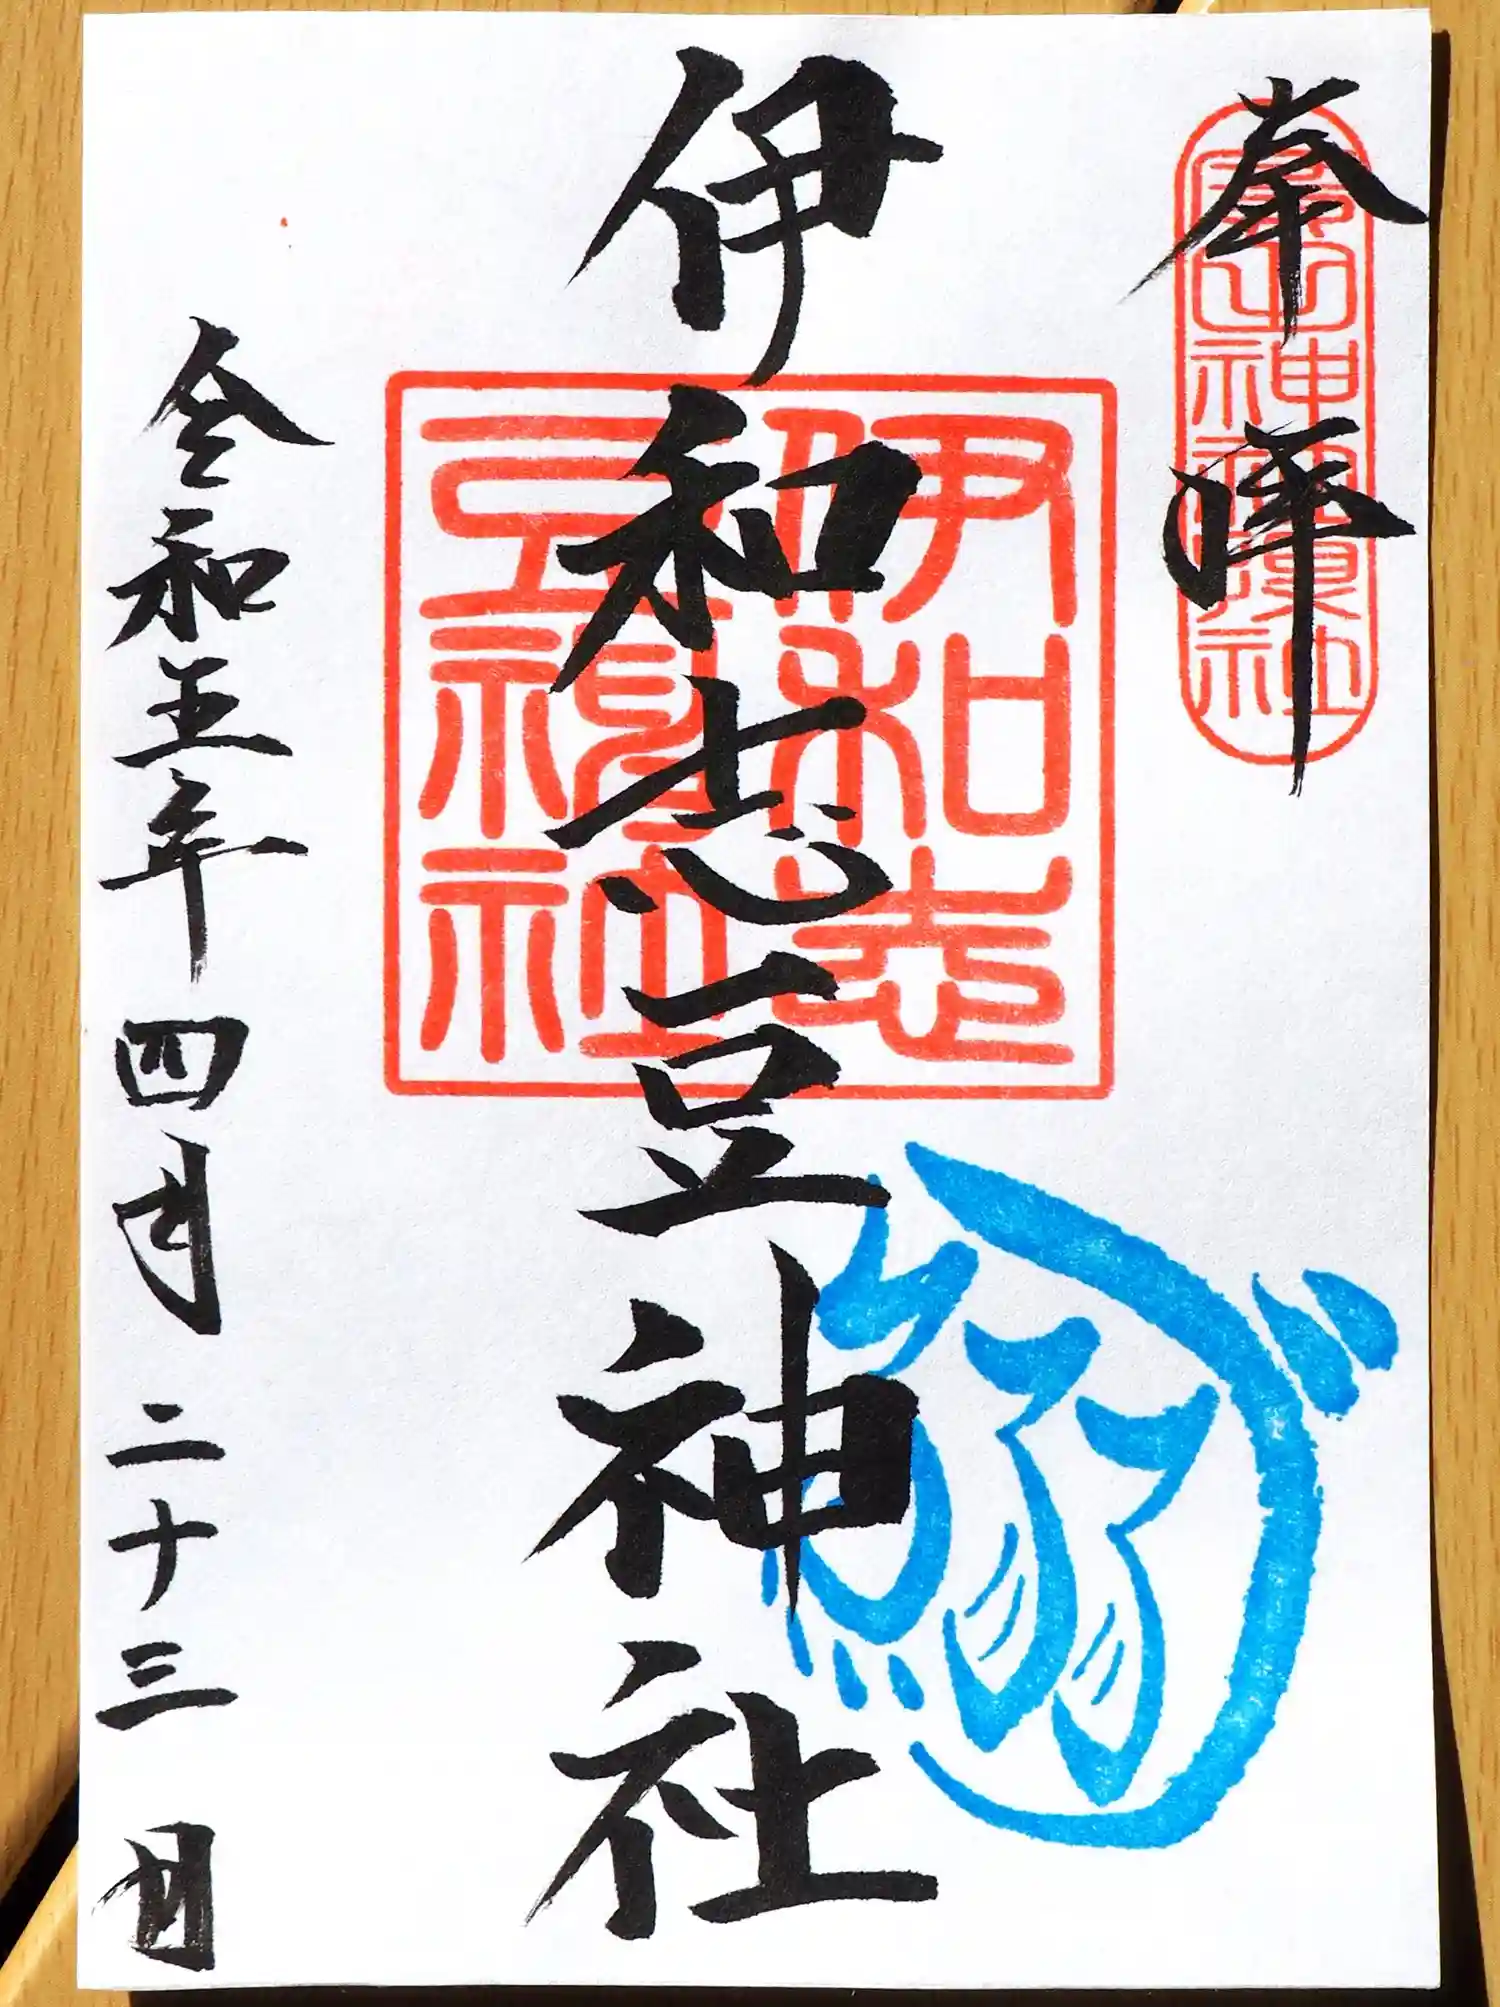 奉拝
伊和志豆神社
伊和志豆神社
令和五年四月二十三日